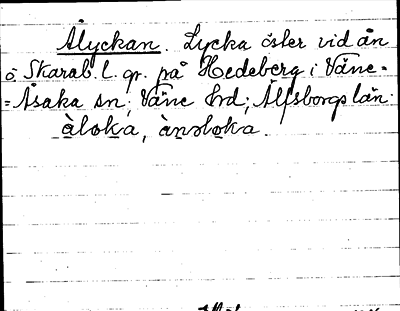 Ålyckan. Lycka öster vid ån
ö Skarab. l. gr. på Hedeberg i Väne-
=Åsaka sn; Väne hrd; Älfsborgs län.
àloka, ànsloka.